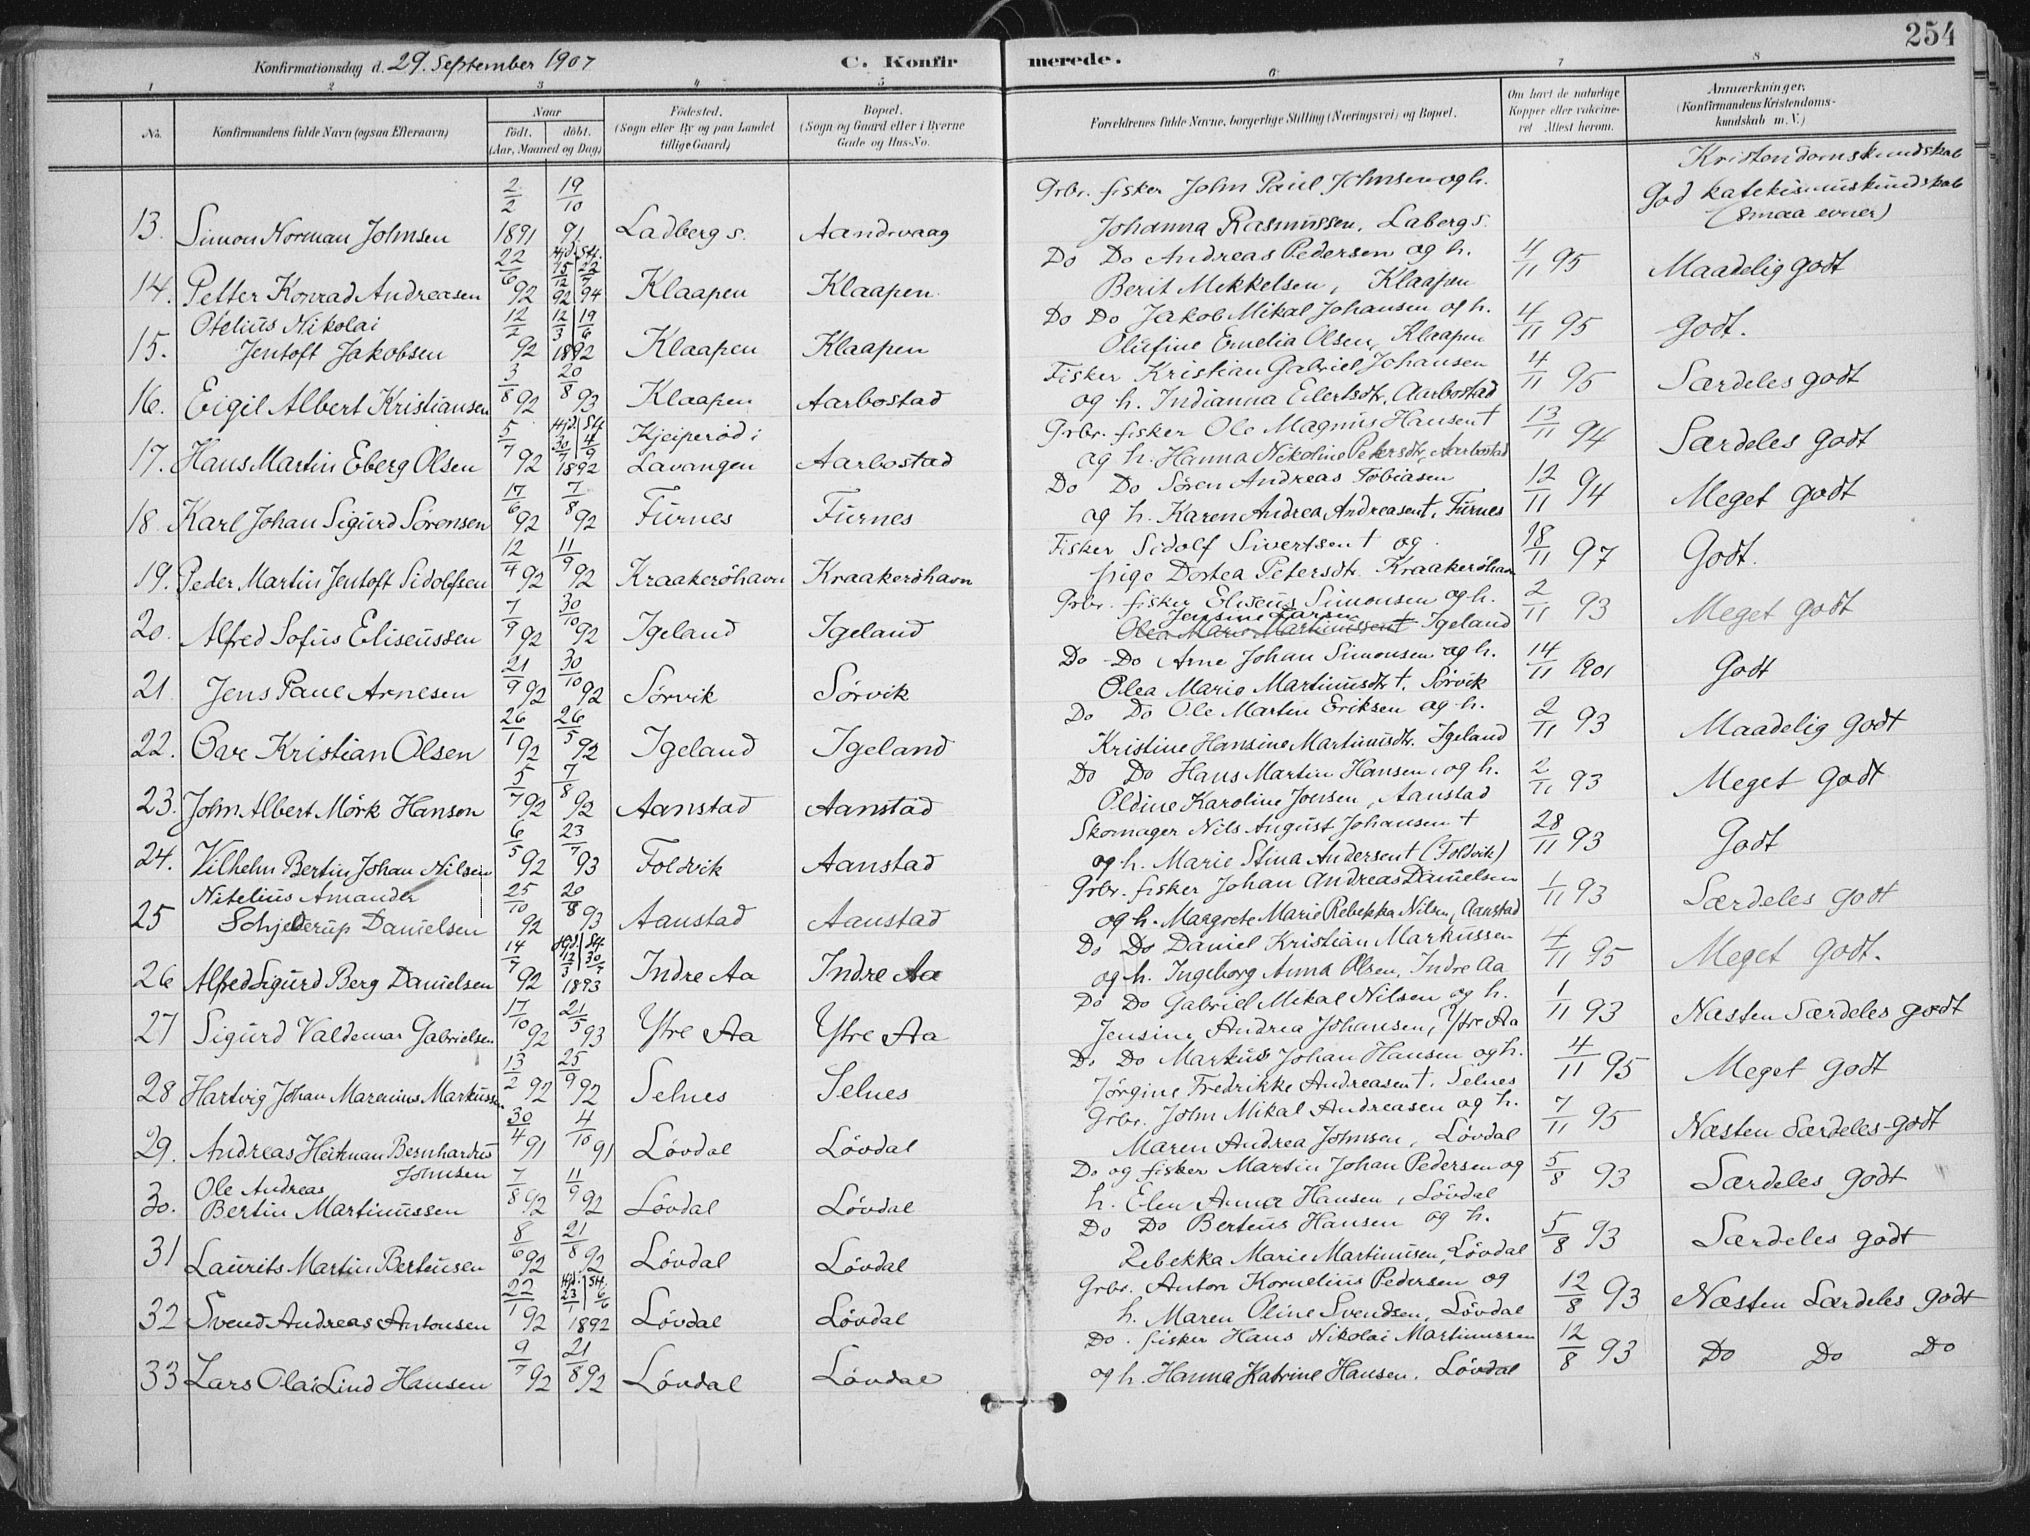 254
Konfirmationsdag d. 29. September 1907
C. Konfirmerede.
1 2 3 4 5 6 7 8
No.
Konfirmandens fulde Navn (ogsaa Efternavn)
Naar
født. døbt.
(Aar, Maaned og Dag)
Fødested.
(Sogn eller By og paa Landet tillige Gaard)
Bopæl.
(Sogn og Gaard eller i Byerne Gade og Hus-No.
Forældrenes fulde Navne, borgerlige Stilling (Næringsvei) og Bopæl.
Om havt de naturlige Kopper eller vakcineret Attest herom.
Anmærkninger.
(Konfirmandens Kristendomskundskab m. V.)
Kristendomskundskab
13. Simon Norman Johnsen 2/2 1891 19/10 91 Ladbergs. Aandvaag Grbr. fisker John Paul Johnsen og h. God katekismuskundskab
Johanna Rasmussen, Labergs. (smaa evner)
14. Petter Konrad Andreasen 22/6 92 Hjd. 15/12 92 Stf. 22/7 94 Klaapen Klaapen Do Do Andreas Pedersen og h. 4/11 95 Maadelig godt
Berit Mekkelsen, Klaapen
15. Otelius Nikolai
Jentoft Jakobsen 12/2 92 12/3 19/6 1892 Klaapen Klaapen Do Do Jakob Mikal Johansen og h. 4/11 95 Godt.
Olufine Emelia Olsen, Klaapen
16. Eigil Albert Kristiansen 3/8 92 20/8 93 Klaapen Aarbostad Fisker Kristian Gabriel Johansen 4/11 95 Særdeles godt
og h. Indianna Eilertsdtr. Aarbostad
17. Hans Martin Eberg Olsen 5/7 92 Hjd. 30/7 Stf. 4/9 1892 Kjeiperød i Lavangen Aarbostad Grbr. fisker Ole Magnus Hansen † 13/11 94 Særdeles godt
og h. Hanna Nikoline Petersdtr, Aarbostad
18. Karl Johan Sigurd Sørensen 17/6 92 7/8 92 Furnes Furnes Do Do Søren Andreas Tobiasen 12/11 94 Meget godt
og h. Karen Andrea Andreasen †, Furnes
19. Peder Martin Jentoft Sidolfsen 12/4 92 11/9 92 Kraakerøhavn Kraakerøhavn Fisker Sidolf Sivertsen † og 18/11 97 Godt.
pige Dortea Petersdtr. Kraakerøhavn
20. Alfred Sofus Eliseussen 7/9 92 30/10 92 Igeland Igeland Grbr. fisker Eliseus Simonsen og h. 2/11 93 Meget godt
Jensine Larsen
Olea Marie Martinussen † Igeland
21. Jens Paul Arnesen 21/9 92 30/10 92 Sørvik Sørvik Do Do Arne Johan Simonsen og h. 14/11 1901 Godt
Olea Marie Martinusdtr †. Sørvik
22. Ove Kristian Olsen 26/1 92 26/5 92 Igeland Igeland Do Do Ole Martin Eriksen og h. 2/11 93 Maadelig godt
Kristine Hansine Martinusdtr. Igeland
23. John Albert Mørk Hansen 5/7 92 7/8 92 Aanstad Aanstad Do Do Hans Martin Hansen, og h. 2/11 93 Meget godt
Oldine Karoline Joensen, Aanstad
24. Vilhelm Bertin Johan Nilsen 6/5 92 23/7 93 Foldvik Aanstad Skomager Nils August Johansen † 28/11 93 Godt
og h. Marie Stina Andersen † (Foldvik)
25 Nitelius Amander
Schjelderup Danielsen 25/10 92 20/8 93 Aanstad Aanstad Grbr. fisker Johan Andreas Danielsen 1/11 93 Særdeles godt
og h. Margrete Marie Rebekka Nilsen, Aanstad
26 Alfred Sigurd Berg Danielsen 14/7 92 Hjd. 12/3 Stf. 30/7 1893 Indre Aa Indre Aa Do Do Daniel Kristian Markussen 4/11 95 Meget godt.
og h. Ingeborg Anna Olsen, Indre Aa
27 Sigurd Valdemar Gabrielsen 17/10 92 21/5 93 Ytre Aa Ytre Aa Do Do Gabriel Mikal Nilsen og h. 1/11 93 Næsten Særdeles godt
Jensine Andrea Johansen, Ytre Aa
28 Hartvig Johan Marenius Markussen 13/2 92 25/9 92 Selnes Selnes Do Do Markus Johan Hansen og h. 4/11 95 Meget godt
Jørgine Fredrikke Andreasen †. Selnes
29. Andreas Heitman Bernhardus
Johnsen 30/4 91 4/10 91 Løvdal Løvdal Grbr. John Mikal Andreasen og h. 7/11 95 Næsten Særdeles godt
Maren Andrea Johnsen, Løvdal
30. Ole Andreas
Bertin Martinussen 7/8 92 11/9 92 Løvdal Løvdal Do og fisker Martin Johan Pedersen og 5/8 93 Særdeles godt
h. Elen Anna Hansen, Løvdal
31 Laurits Martin Berteusen 8/6 92 21/8 92 Løvdal Løvdal Do Do Berteus Hansen og h. 5/8 93 Særdeles godt
Rebekka Marie Martinusen, Løvdal
32 Svend Andreas Antonsen 22/1 92 Hjd. 23/1 Stf. 6/6 1892 Løvdal Løvdal Grbr. Anton Kornelius Pedersen og 12/8 93 Næsten Særdeles godt
h. Maren Oline Svendsen, Løvdal
33 Lars Olai Lind Hansen 9/7 92 21/8 92 Løvdal Løvdal Do. fisker Hans Nikolai Martinussen 12/8 93 Do Do Do
og h. Hanna Katrine Hansen. Løvdal